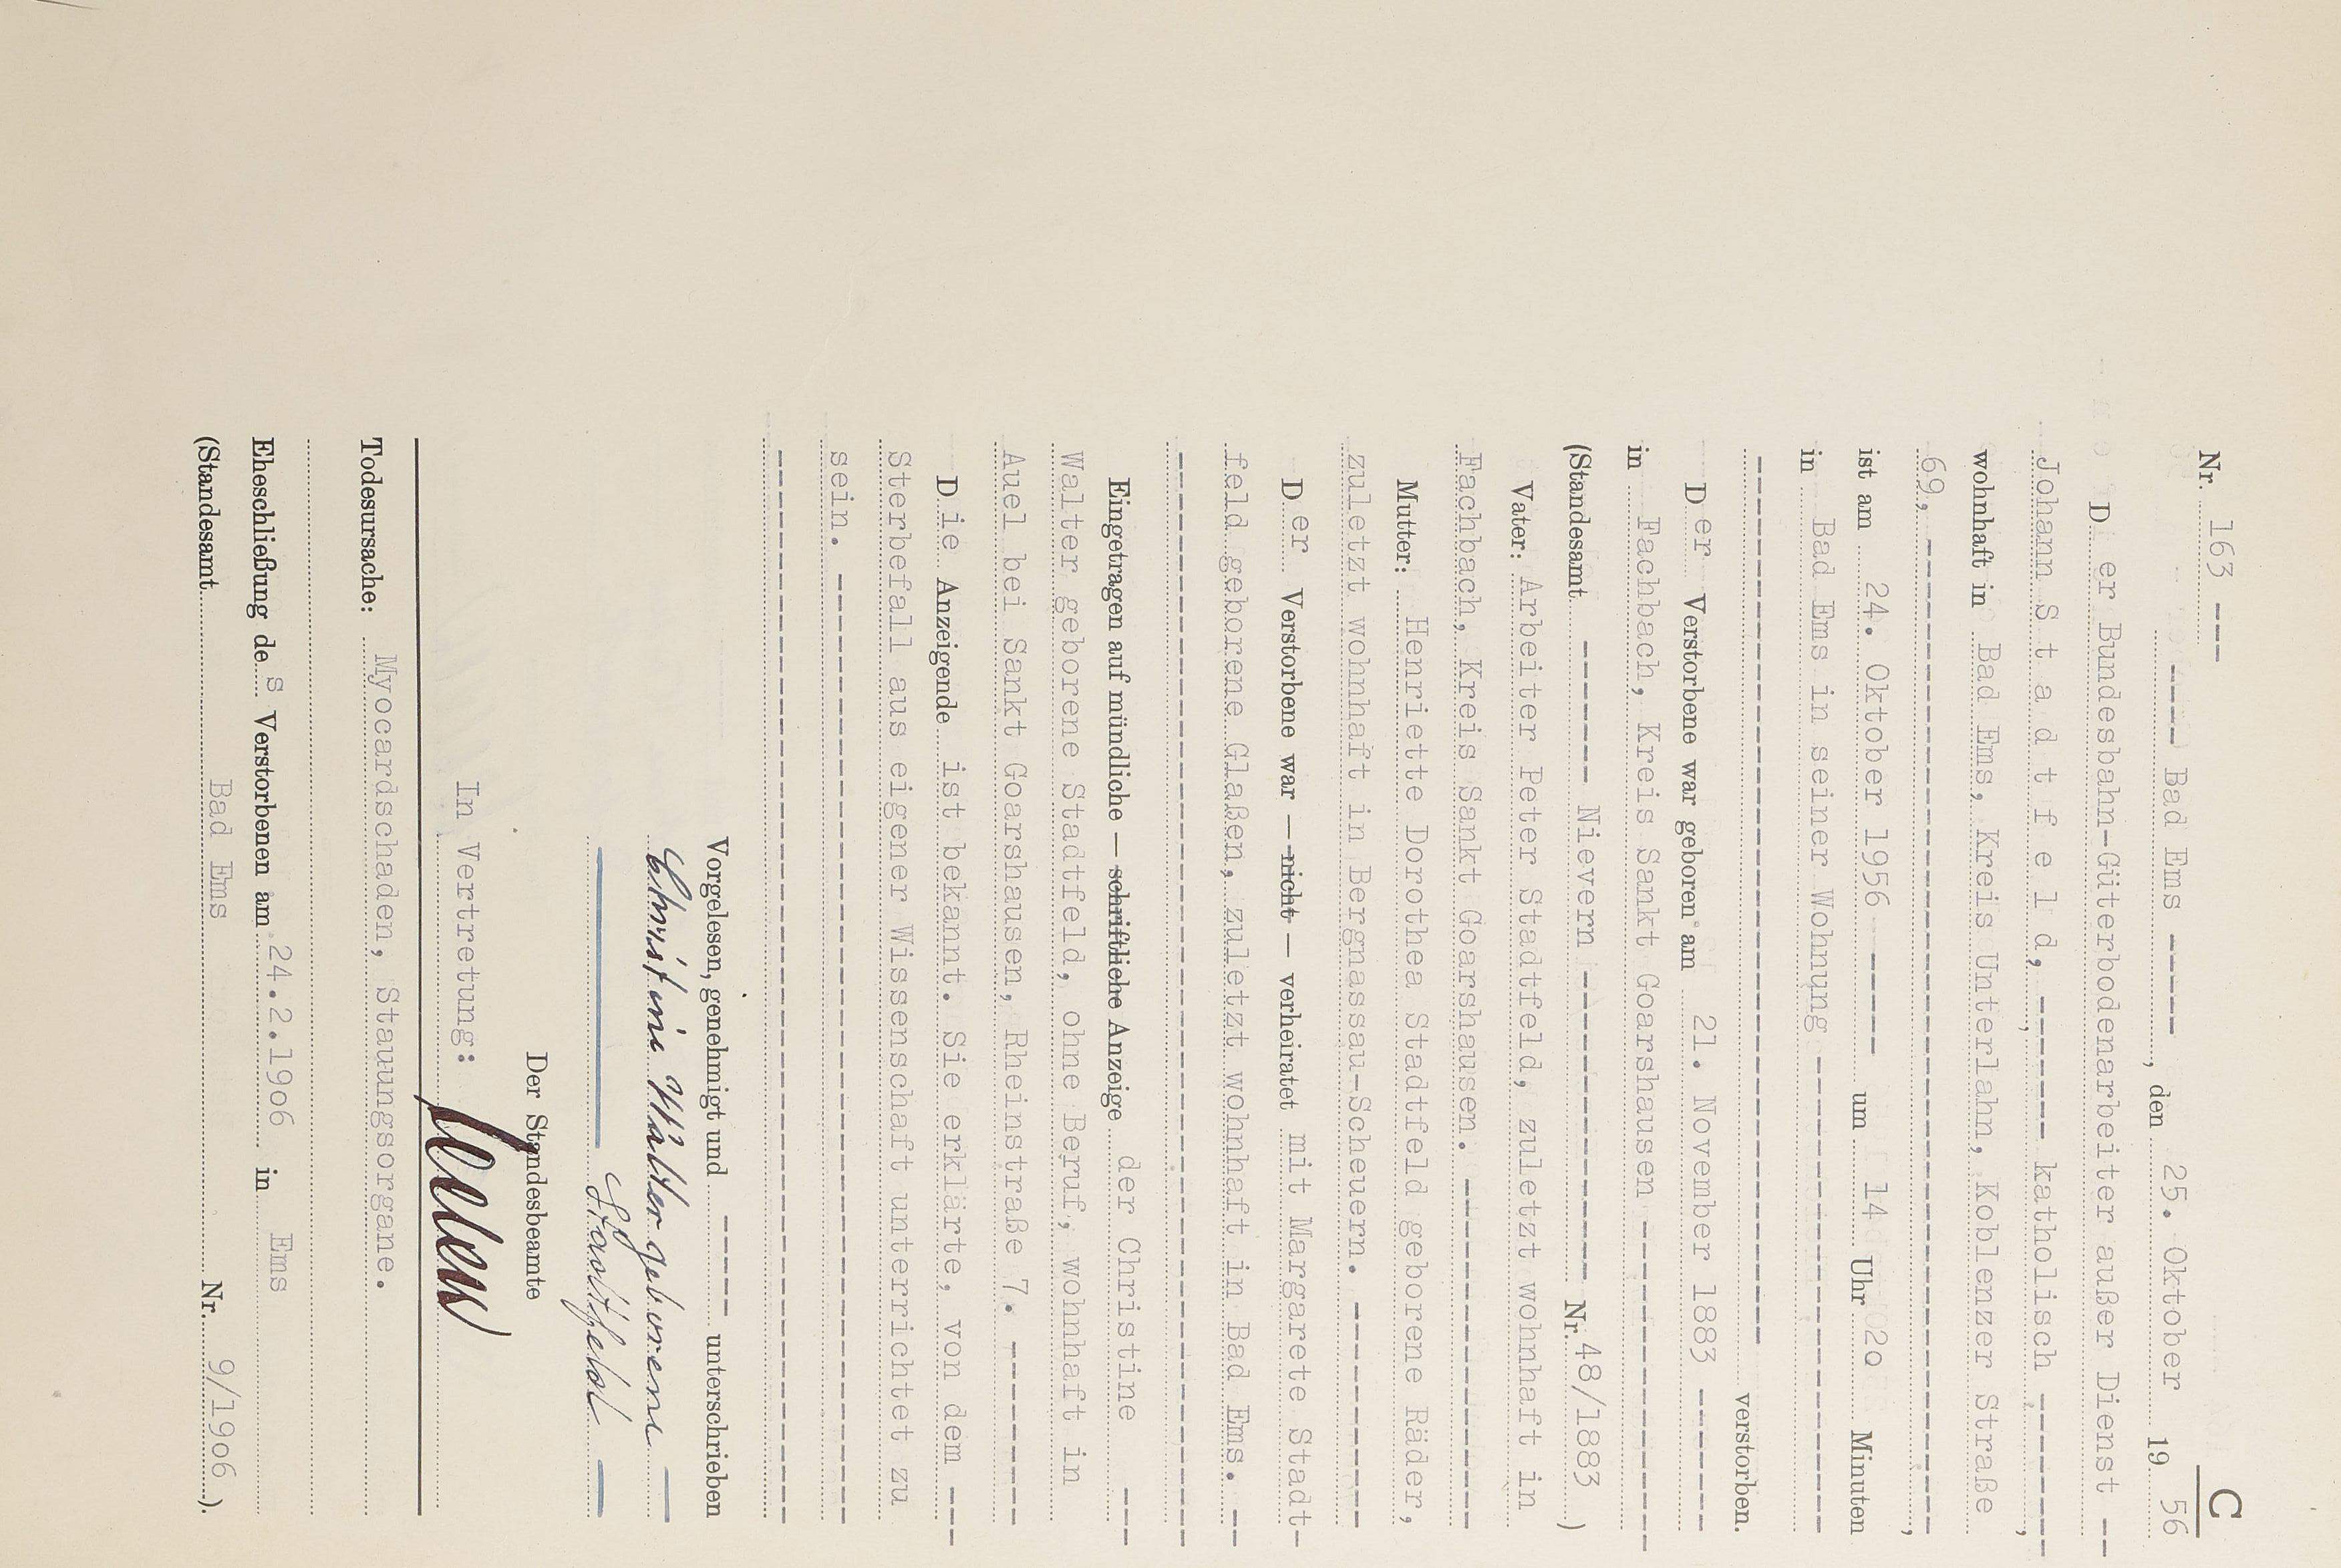 C
Nr. 163 ---
---- Bad Ems -----, den 25. Oktober 19 56
Der Bundesbahn-Güterbodenarbeiter außer Dienst --
Johann S t a d t f e l d, ------- katholisch -------,
wohnhaft in Bad Ems, Kreis Unterlahn, Koblenzer Straße
69, ----------------------------------------,
ist am 24. Oktober 1956 ----- um 14 Uhr 2o Minuten
in Bad Ems in seiner Wohnung -----------------------
------------------------------------------- verstorben.
Der Verstorbene war geboren am 21. November 1883 -------
in Fachbach, Kreis Sankt Goarshausen ----------------
(Standesamt ------- Nievern --------------- Nr. 48/1883 )
Vater: Arbeiter Peter Stadtfeld, zuletzt wohnhaft in
Fachbach, Kreis Sankt Goarshausen. -----------------
Mutter: Henriette Dorothea Stadtfeld geborene Räder,
zuletzt wohnhaft in Bergnassau-Scheuern. -----------
Der Verstorbene war — nicht — verheiratet mit Margarete Stadt-
feld geborene Glaßen, zuletzt wohnhaft in Bad Ems. --
----------------------------------------------------
Eingetragen auf mündliche — schriftliche Anzeige der Christine ---
Walter geborene Stadtfeld, ohne Beruf, wohnhaft in
Auel bei Sankt Goarshausen, Rheinstraße 7. ---------
Die Anzeigende ist bekannt. Sie erklärte, von dem ---
Sterbefall aus eigener Wissenschaft unterrichtet zu
sein. ----------------------------------------------
----------------------------------------------------
Vorgelesen, genehmigt und ----- unterschrieben
Christine Walter geborene —
— Stadtfeld —
Der Standesbeamte
In Vertretung:
Todesursache: Myocardschaden, Stauungsorgane.
Eheschließung des Verstorbenen am 24.2.19o6 in Ems
(Standesamt Bad Ems Nr. 9/19o6 ).